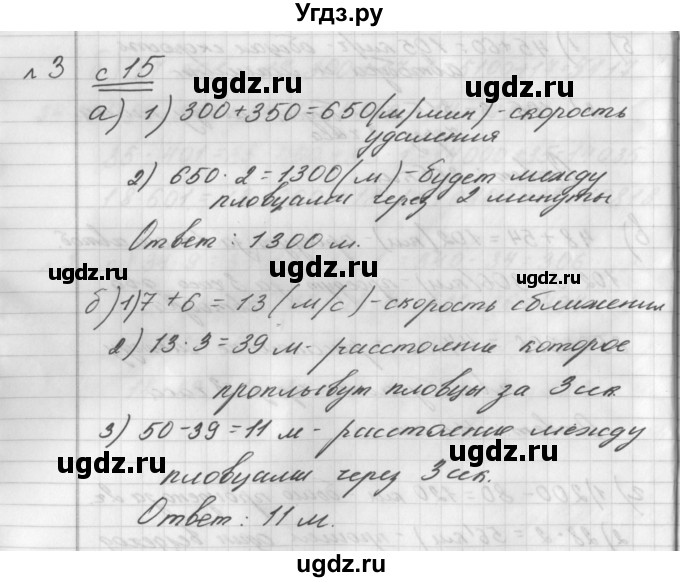 Угдз.ру
л 3 с 15
ugdz.ru ugdz.ru
а) 1) 300+350=650(м/мин)-скорость
удаления
2) 650·2=1300(м)-будет между
ugdz.ru ugdz.ru
пловцами через 2 минуты
Ответ: 1300м.
ugdz.ru ugdz.ru ugdz.ru
б)1)7+6=13(м/с)-скорость сближения
2) 13·3=39 м- расстояние которое
ugdz.ru ugdz.ru
проплывут пловцы за 3сек
3) 50-39=11 м- расстояние между
ugdz.ru ugdz.ru
пловцами через 3сек.
Ответ: 11м.
ugdz.ru
Угдз.ру